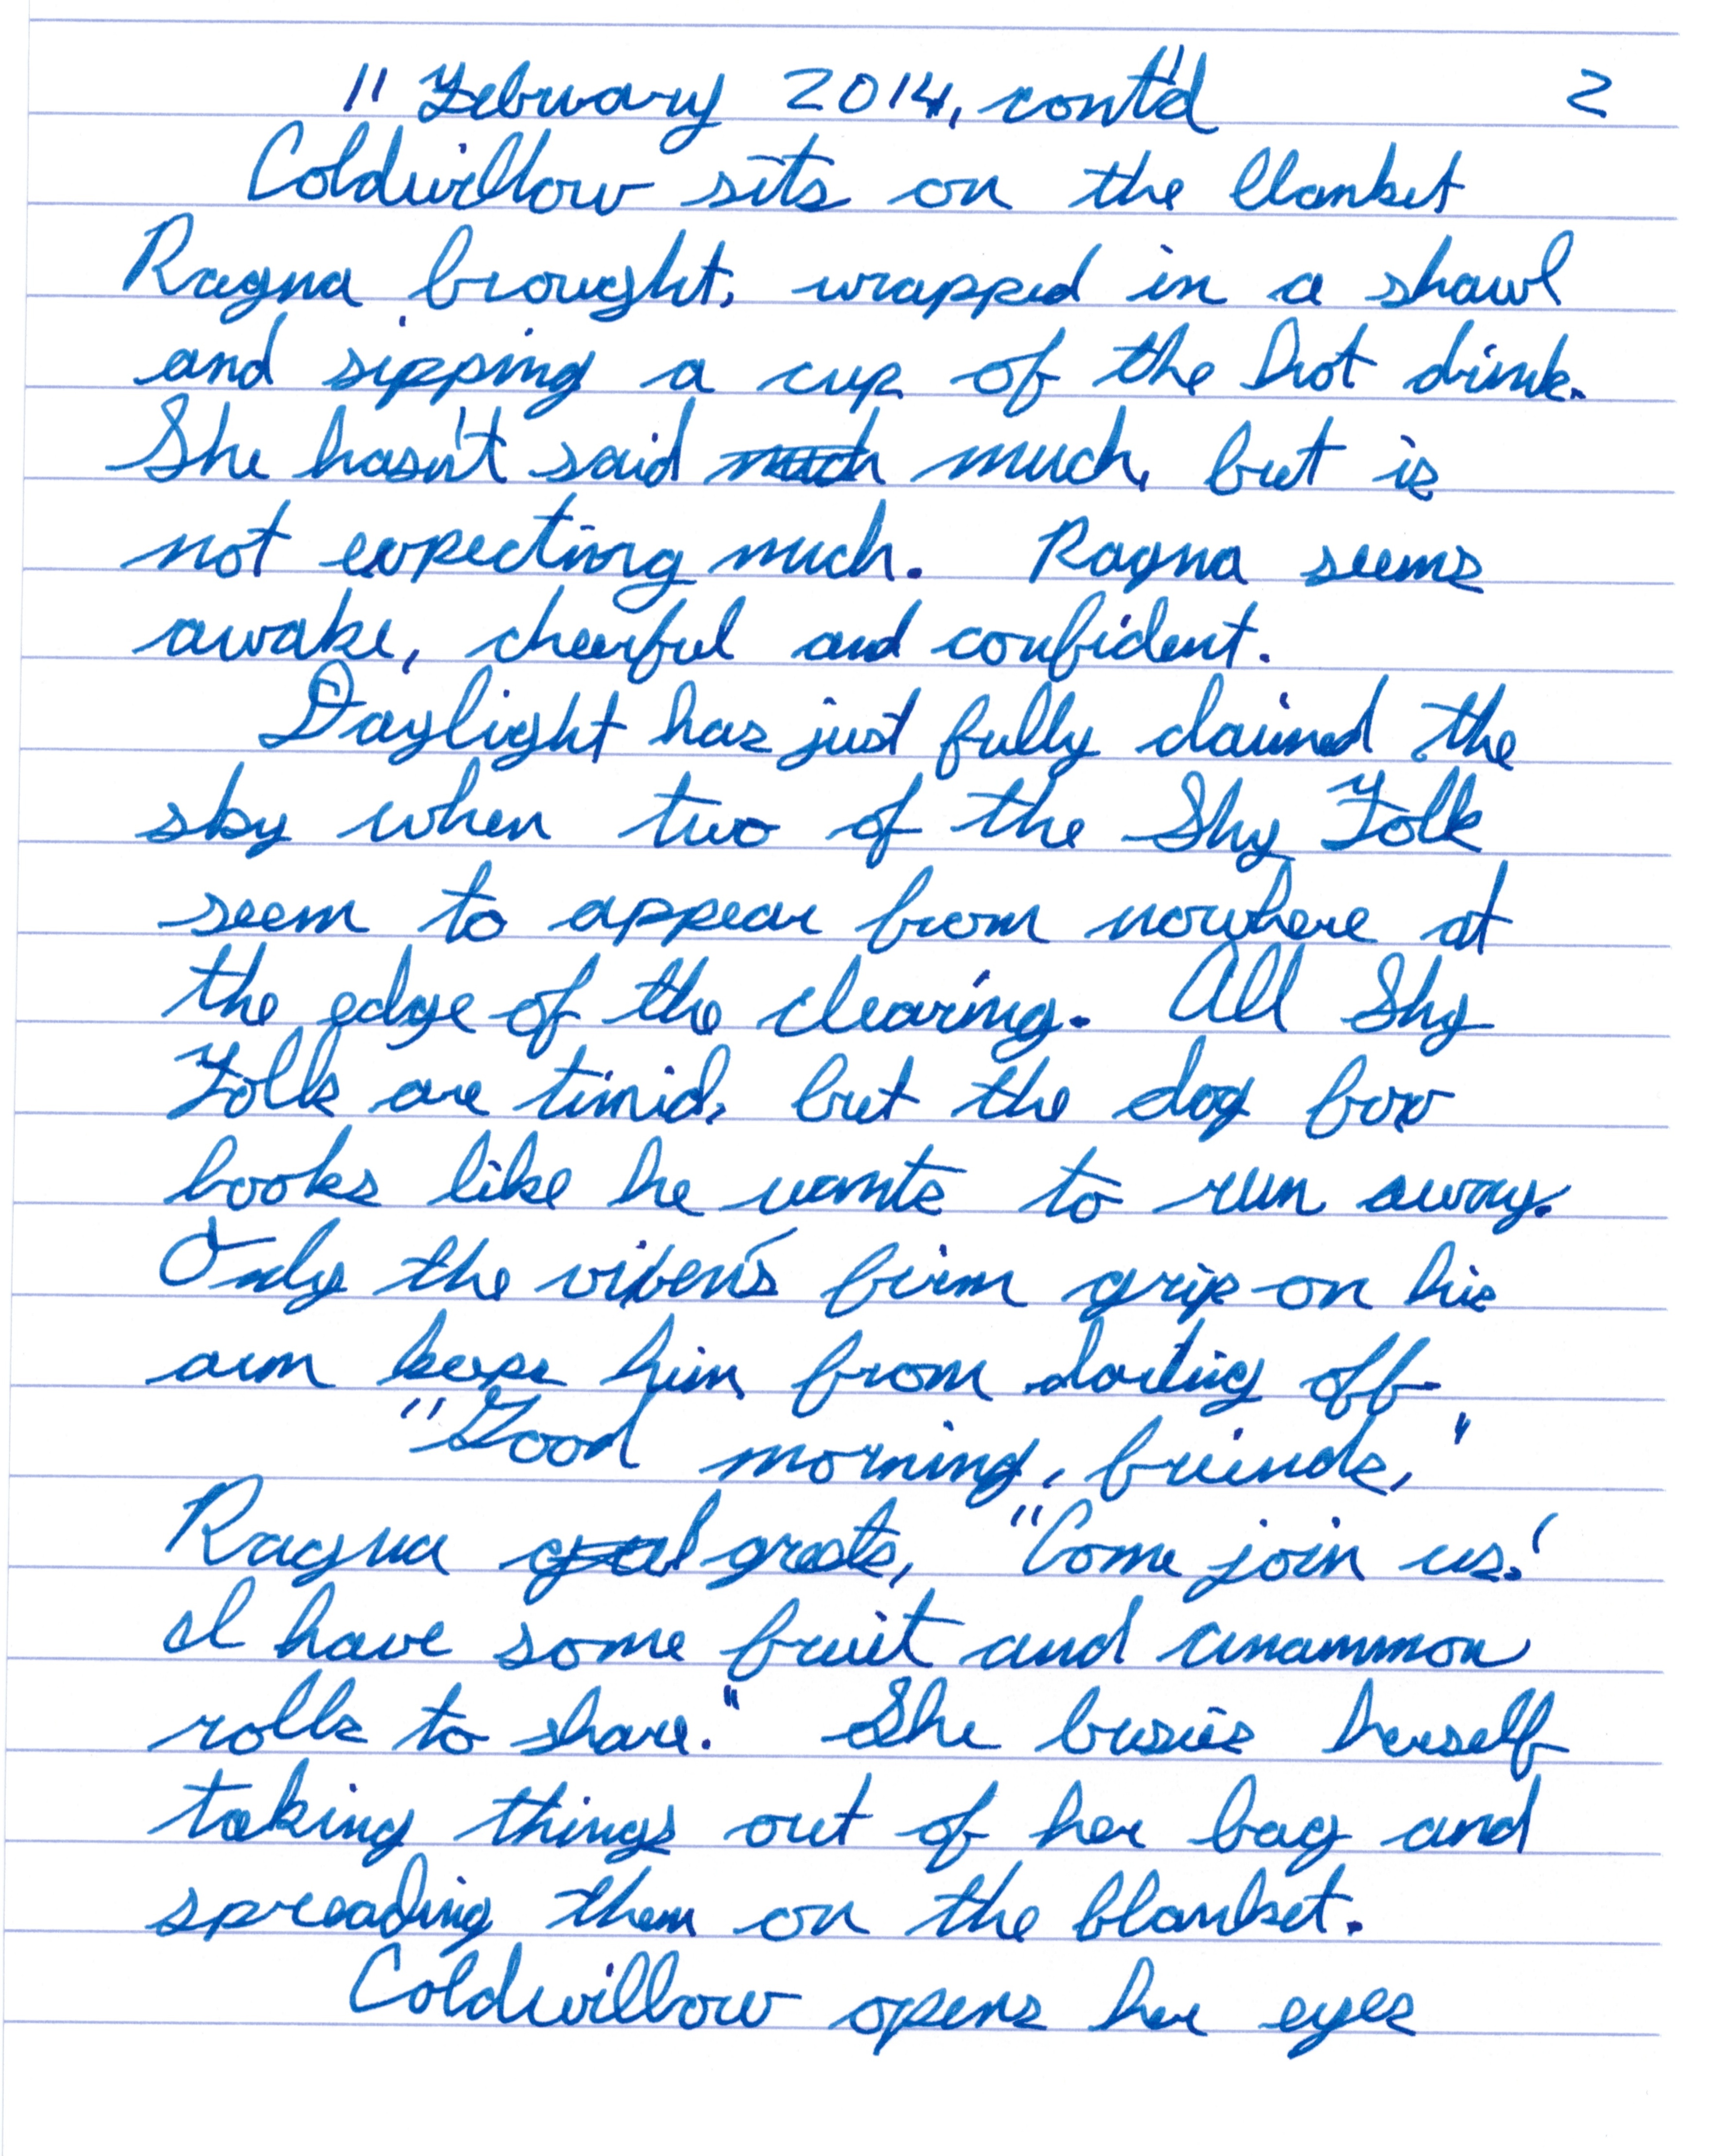 11 February 2014, cont'd 2
Coldwillow sits on the blanket
Ragna brought, wrapped in a shawl
and sipping a cup of the hot drink.
She hasn't said much much, but is
not expecting much. Ragna seems
awake, cheerful and confident.
Daylight has just fully claimed the
sky when two of the Shy Folk
seem to appear from nowhere at
the edge of the clearing. All Shy
Folk are timid, but the dog fox
looks like he wants to run away.
Only the vixen's firm grip on his
arm keeps him from darting off.
"Good morning, friends,"
Ragna greets, "Come join us!
I have some fruit and cinammon
rolls to share." She busies herself
taking things out of her bag and
spreading them on the blanket.
Coldwillow opens her eyes